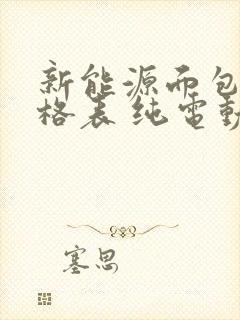 新能源而包
格表 纯電動
塞思